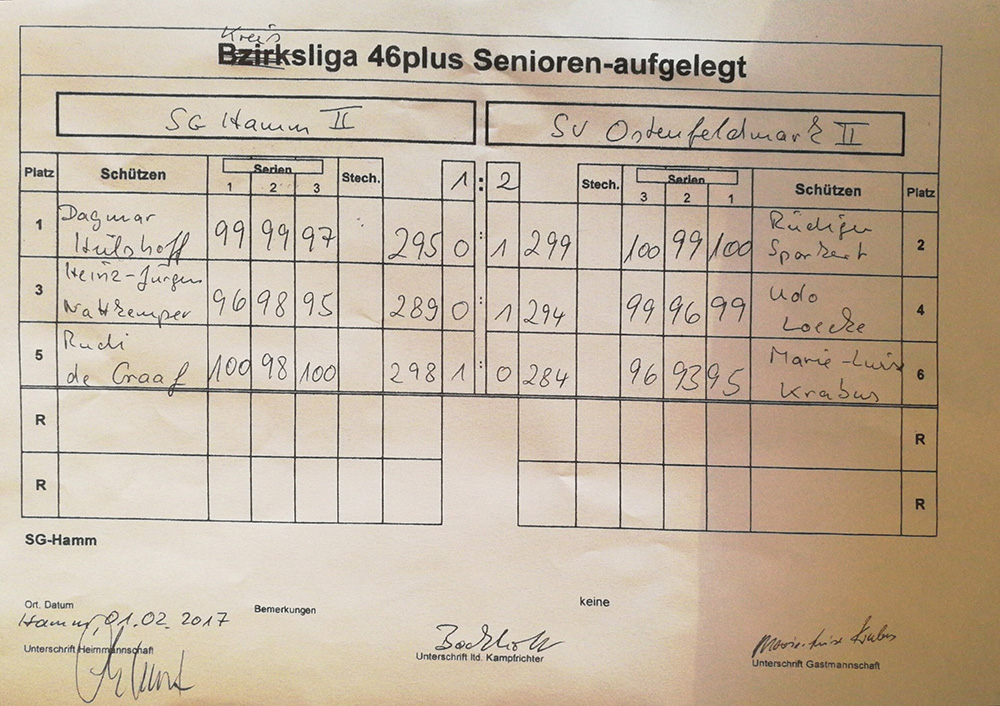 Kreis
Bzirksliga 46plus Senioren-aufgelegt
SG Hamm II SV Ostenfeldmark II
Platz Schützen Serien Stech. 1 : 2 Stech. Serien Schützen Platz
1 2 3 3 2 1
1 Dagmar Hülshoff 99 99 97 295 0 : 1 299 100 99 100 Rüdiger 2
3 Heinz-Jürgen Nattkemper 96 98 95 289 0 : 1 294 99 96 99 Udo Loecke 4
5 Rudi de Graaf 100 98 100 298 1 : 0 284 96 93 95 Marie-Luise Krabus 6
R R
R R
SG-Hamm
Ort. Datum Bemerkungen keine
Hamm, 01.02.2017
Unterschrift Heimmannschaft Unterschrift ltd. Kampfrichter Marie-Luise Krabus
Unterschrift Gastmannschaft